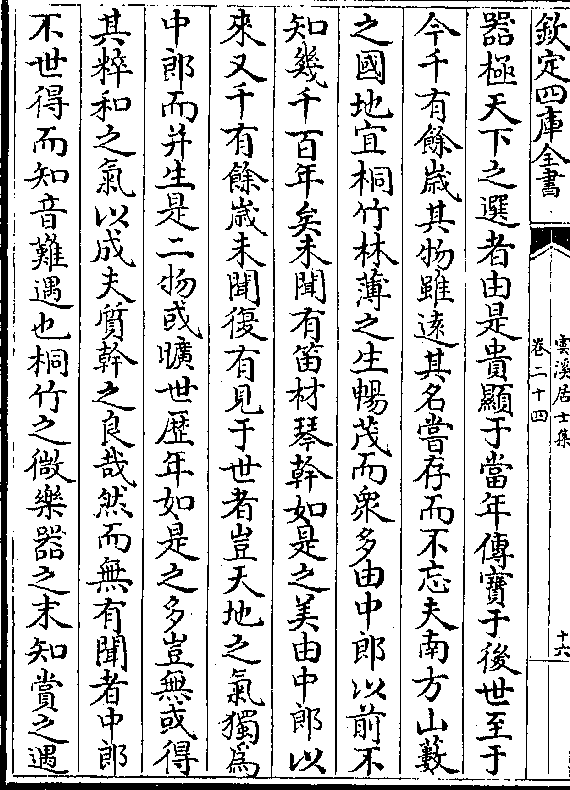 欽定四庫全書
雲溪居士集
卷二十四
十六
器極天下之選者由是貴顯于當年傳寶于後世至于
今千有餘歲其物雖遠其名嘗存而不忘夫南方山藪
之國地宜桐竹林薄之生暢茂而衆多由中郎以前不
知幾千百年矣未聞有笛材琴幹如是之美由中郎以
來又千有餘歲未聞復有見于世者豈天地之氣獨為
中郎而并生是二物或曠世歴年如是之多豈無或得
其粹和之氣以成夫質幹之良哉然而無有聞者中郎
不世得而知音難遇也桐竹之微樂器之末知賞之遇